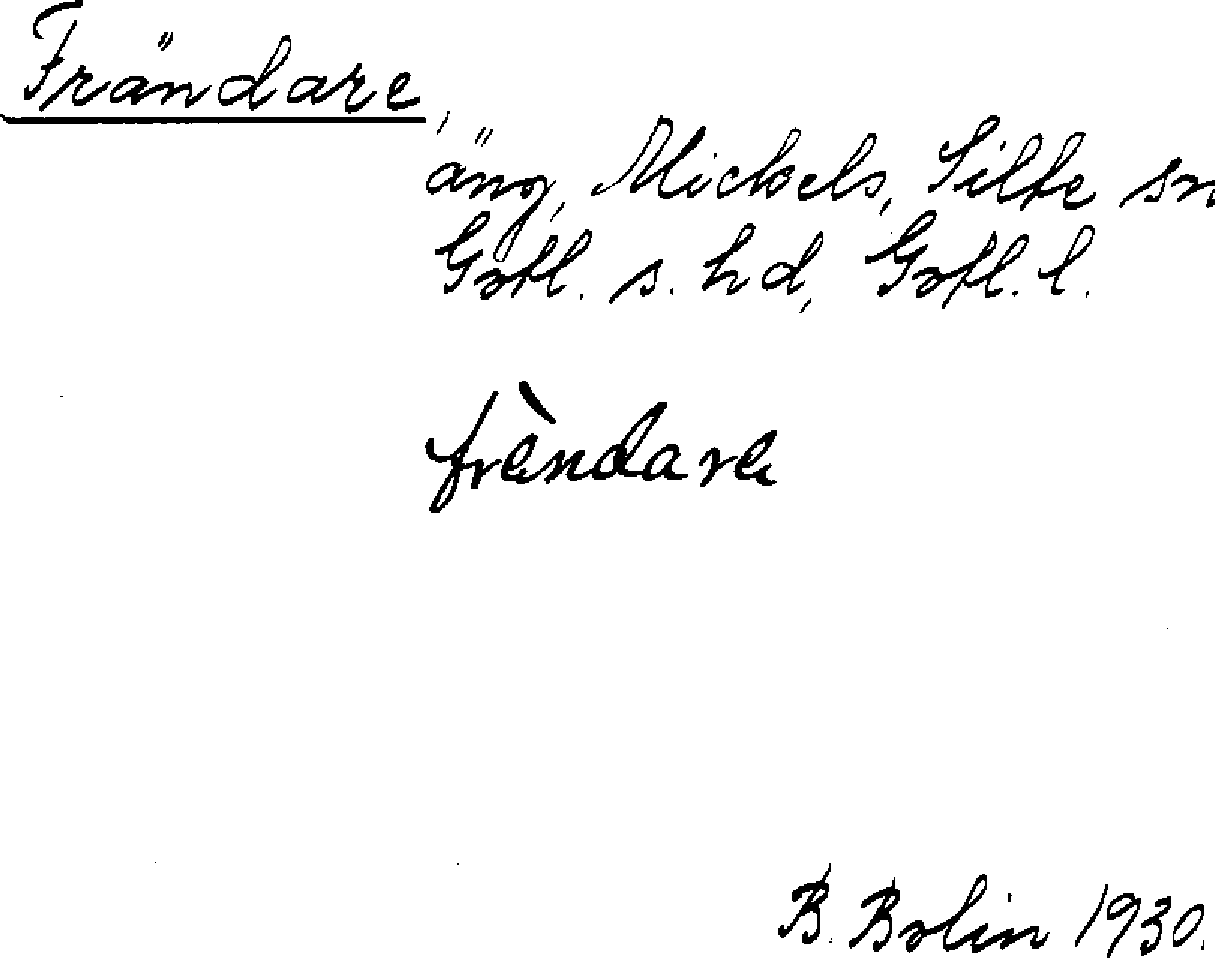 Frändare,
äng, Mickels, Silte sn
Gotl. s. hd, Gotl. l.
frèndare
B. Bolin 1930.